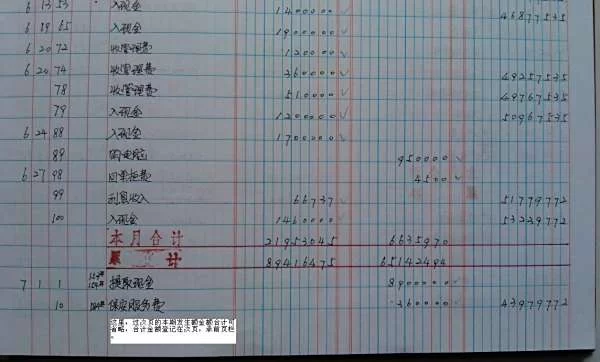 6 13 53 入现金 1400000 46877535
6 19 65 入现金 1900000
6 20 72 收管理费 120000
6 20 74 收管理费 360000 49257535
78 收管理费 510000 49767535
79 入现金 1200000 50967535
6 24 88 入现金 1700000
89 950000
6 27 98 回单柜费 4500
99 利息收入 66737 51779772
100 入现金 1460000 53239772
本月合计 21953045 6635970
累 计 89416475 65142494
7 1 1 提取现金 8900000
10 保安服务费 360000 43979772
这里,过次页的本期发生额金额合计可
省略,合计金额登记在次页,承前页栏
。